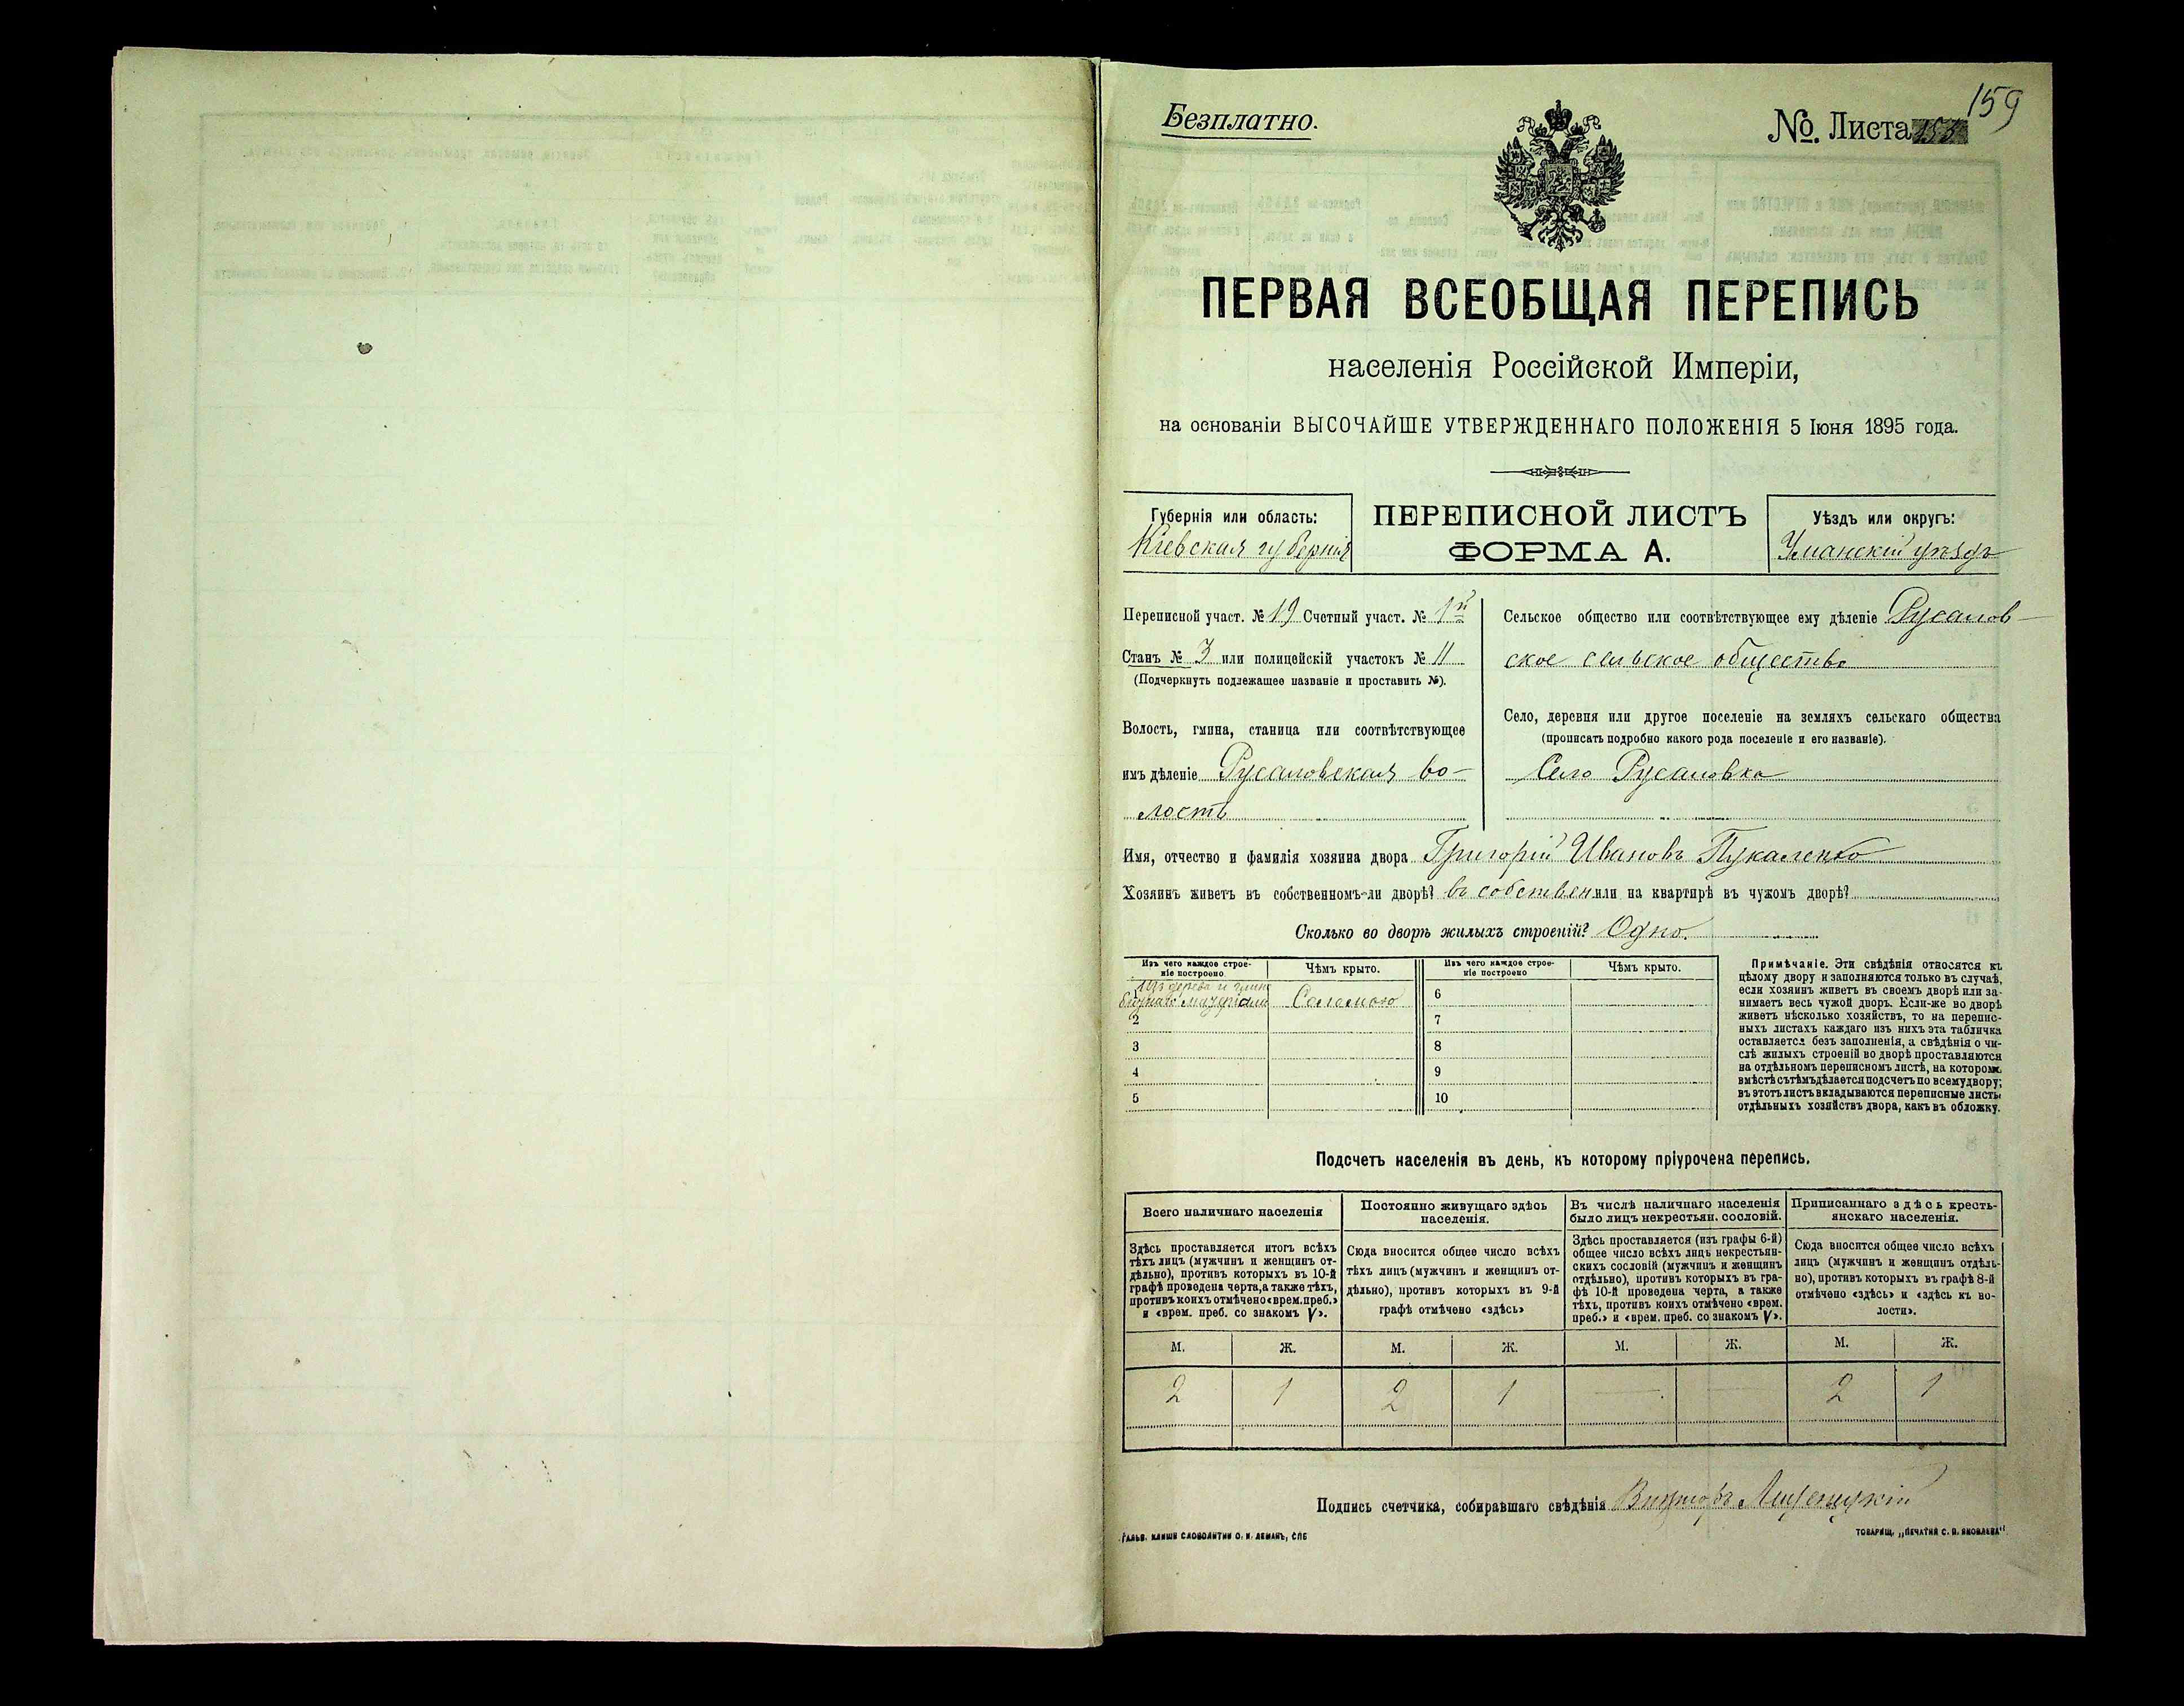 Безплатно.
№ Листа 159
ПЕРВАЯ ВСЕОБЩАЯ ПЕРЕПИСЬ
населенія Россійской Имперіи,
на основаніи ВЫСОЧАЙШЕ УТВЕРЖДЕННАГО ПОЛОЖЕНІЯ 5 Іюня 1895 года.
Губернія или область:
Кіевская губернія
ПЕРЕПИСНОЙ ЛИСТЪ
ФОРМА А.
Уѣздъ или округъ:
Уманскій уѣздъ
Переписной участ. № 19 Счетный участ. № 1й
Станъ № 3 или полицейскій участокъ № 11
(Подчеркнуть подлежащее названіе и проставить №).
Волость, гмина, станица или соотвѣтствующее
имъ дѣленіе Русаловская во-
лость
Сельское общество или соотвѣтствующее ему дѣленіе Русалов-
ское сельское общество
Село, деревня или другое поселеніе на земляхъ сельскаго общества
(прописать подробно какого рода поселеніе и его названіе).
Село Русаловка
Имя, отчество и фамилія хозяина двора Григорій Ивановъ Пукаленко
Хозяинъ живетъ въ собственномъ-ли дворѣ? въ собствен. или на квартирѣ въ чужомъ дворѣ?
Сколько во дворѣ жилыхъ строеній? Одно.
Изъ чего каждое строе-
ніе построено
Чѣмъ крыто.
Изъ чего каждое строе-
ніе построено
Чѣмъ крыто.
Изъ дерева и глино
Соломою
6
2
7
3
8
4
9
5
10
Примѣчаніе. Эти свѣдѣнія относятся къ
цѣлому двору и заполняются только въ случаѣ,
если хозяинъ живетъ въ своемъ дворѣ или за-
нимаетъ весь чужой дворъ. Если-же во дворѣ
живетъ нѣсколько хозяйствъ, то на перепис-
ныхъ листахъ каждаго изъ нихъ эта табличка
оставляется безъ заполненія, а свѣдѣнія о чи-
слѣ жилыхъ строеній во дворѣ проставляются
на отдѣльномъ переписномъ листѣ, на которомъ
вмѣстѣ съ тѣмъ дѣлается подсчетъ по всему двору;
въ этотъ листъ вкладываются переписные листы
отдѣльныхъ хозяйствъ двора, какъ въ обложку.
Подсчетъ населенія въ день, къ которому пріурочена перепись.
Всего наличнаго населенія
Здѣсь проставляется итогъ всѣхъ
тѣхъ лицъ (мужчинъ и женщинъ от-
дѣльно), противъ которыхъ въ 10-й
графѣ проведена черта, а также тѣхъ,
противъ коихъ отмѣчено «врем. преб.»
и «врем. преб. со знакомъ V».
Постоянно живущаго здѣсь
населенія.
Сюда вносится общее число всѣхъ
тѣхъ лицъ (мужчинъ и женщинъ от-
дѣльно), противъ которыхъ въ 9-й
графѣ отмѣчено «здѣсь»
Въ числѣ наличнаго населенія
было лицъ некрестьян. сословій.
Здѣсь проставляется (изъ графы 6-й)
общее число всѣхъ лицъ некрестьян-
скихъ сословій (мужчинъ и женщинъ
отдѣльно), противъ которыхъ въ гра-
фѣ 10-й проведена черта, а также
тѣхъ, противъ коихъ отмѣчено «врем.
преб.» и «врем. преб. со знакомъ V».
Приписаннаго здѣсь кресть-
янскаго населенія.
Сюда вносится общее число всѣхъ
лицъ (мужчинъ и женщинъ отдѣль-
но), противъ которыхъ въ графѣ 8-й
отмѣчено «здѣсь» и «здѣсь къ во-
лости».
М. Ж. М. Ж. М. Ж. М. Ж.
2 1 2 1 — — 2 1
Подпись счетчика, собиравшаго свѣдѣнія Викторъ
Гальв. клише словолитни О. И. Леманъ, СПБ
Товарищ. „Печатня С. П. Яковлева“.